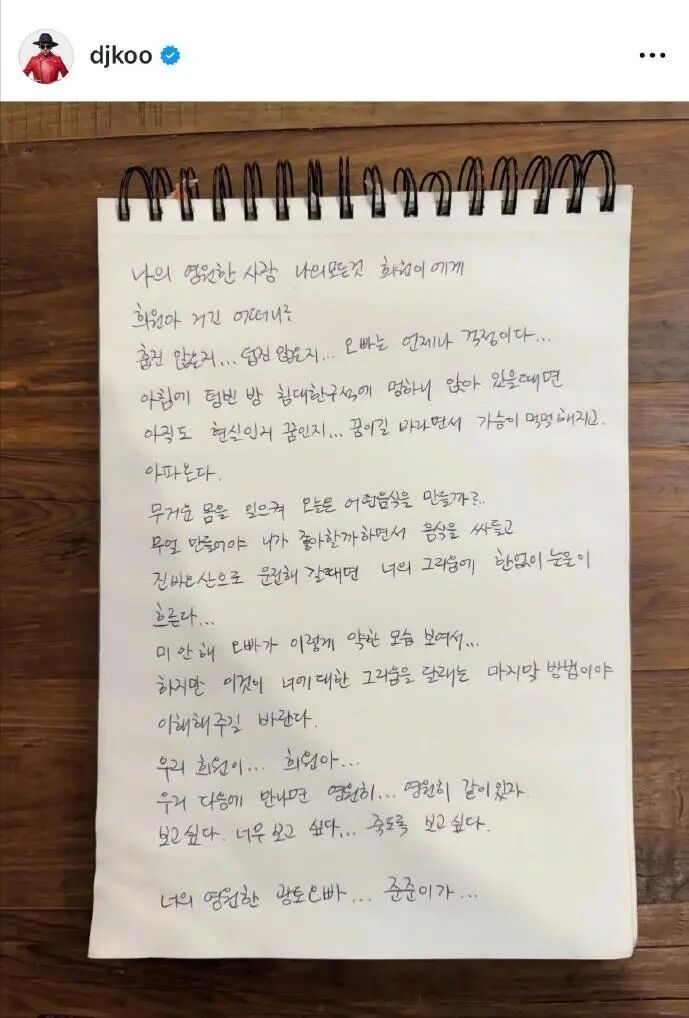 djkoo
나의 영원한 사랑 나의 모든것 희원이에게
희원아 거긴 어떠니?
춥진 않은지... 덥진 않은지... 오빠는 언제나 걱정이다...
아침에 텅빈 방 침대한구석에 멍하니 앉아 있을때면
아직도 현실인지 꿈인지... 꿈이길 바라면서 가슴이 먹먹해지고.
아파온다.
무거운 몸을 일으켜 오늘은 어떤음식을 만들까?..
무얼 만들어야 니가 좋아할까하면서 음식을 싸들고
진바오산으로 운전해 갈때면 너의 그리움에 한없이 눈물이
흐른다...
미안해 오빠가 이렇게 약한 모습 보여서...
하지만 이것이 너에대한 그리움을 달래는 마지막 방법이야
이해해주길 바란다.
우리 희원이... 희원아...
우리 다음에 만나면 영원히... 영원히 같이있자.
보고싶다. 너무 보고 싶다... 죽도록 보고싶다.
너의 영원한 광토오빠... 준준이가...